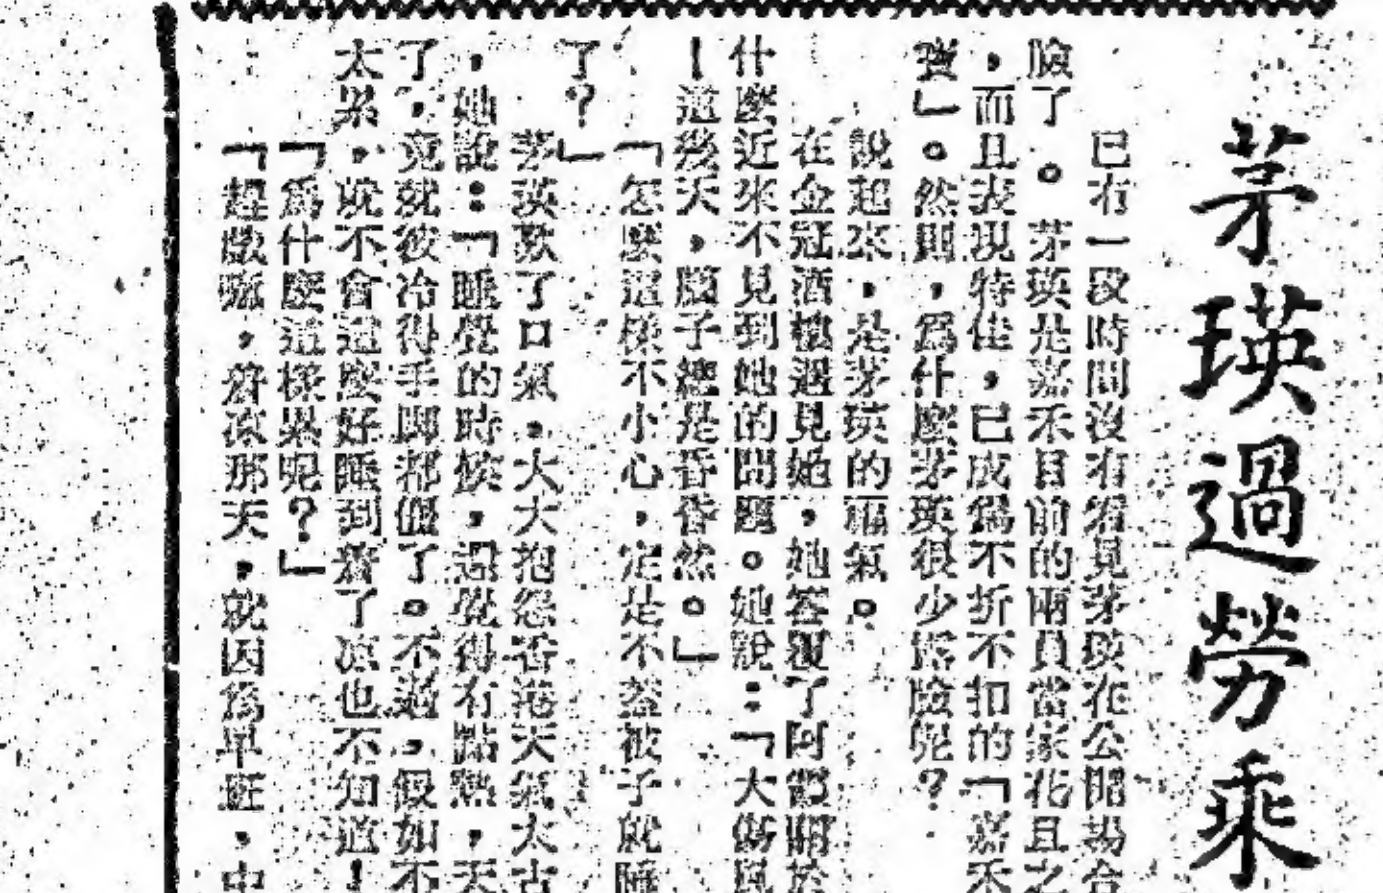 茅瑛過勞乘
已有一段時間沒有看見茅瑛在公開場合
臉了。茅瑛是嘉禾目前的兩員當家花旦之
，而且表現特佳，已成爲不折不扣的「嘉禾
寶」。然則，爲什麼茅瑛很少露臉呢？
說起來，是茅瑛的福氣。
在金冠酒樓遇見她，她答覆了阿鄧關於
什麼近來不見到她的問題。她說：「大傷風
！這幾天，腦子總是昏昏然。」
「怎麼這樣不小心，定是不蓋被子就睡
了？」
茅瑛歎了口氣，大大抱怨香港天氣太古
，她說：「睡覺的時候，還覺得有點熱，天
了，竟就被冷得手脚都僵了。不過，假如不
太累，就不會這麼好睡到着了凉也不知道！
「爲什麼這樣累呢？」
「趕戲嘛，着凉那天，就因爲早班，中